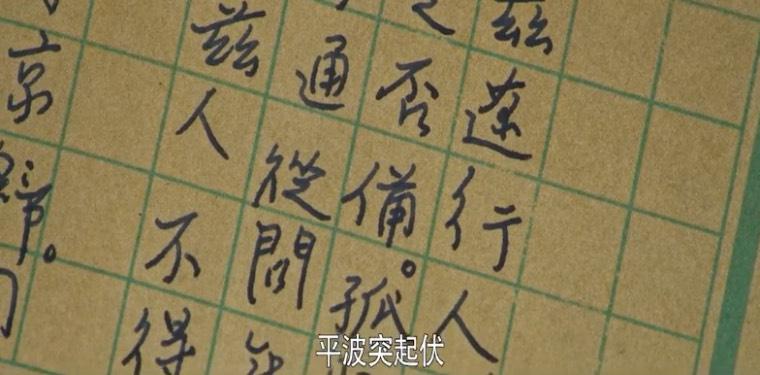 茲行人
否備。孤
通從問
茲人不得
京
平波突起伏